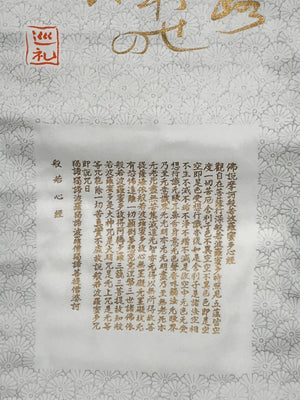 の
巡礼
佛說摩訶般若波羅蜜多心經
觀自在菩薩行深般若波羅蜜多時照見五蘊皆空
度一切苦厄舍利子色不異空空不異色色即是空
空即是色受想行識亦復如是舍利子是諸法空相
不生不滅不垢不淨不增不減是故空中无色无受
想行識无眼耳鼻舌身意无色聲香味觸法无眼界
乃至无意識界无无明亦无无明盡乃至无老死亦
无老死盡无苦集滅道无智亦无得以无所得故菩
提薩埵依般若波羅蜜多故心无罣礙无罣礙故无
有恐怖遠離一切顛倒夢想究竟涅槃三世諸佛依
般若波羅蜜多故得阿耨多羅三藐三菩提故知般
若波羅蜜多是大神咒是大明咒是无上咒是无等
等咒能除一切苦真實不虛故說般若波羅蜜多咒
即說咒曰
揭諦揭諦波羅揭諦波羅僧揭諦菩提僧莎訶
般若心經